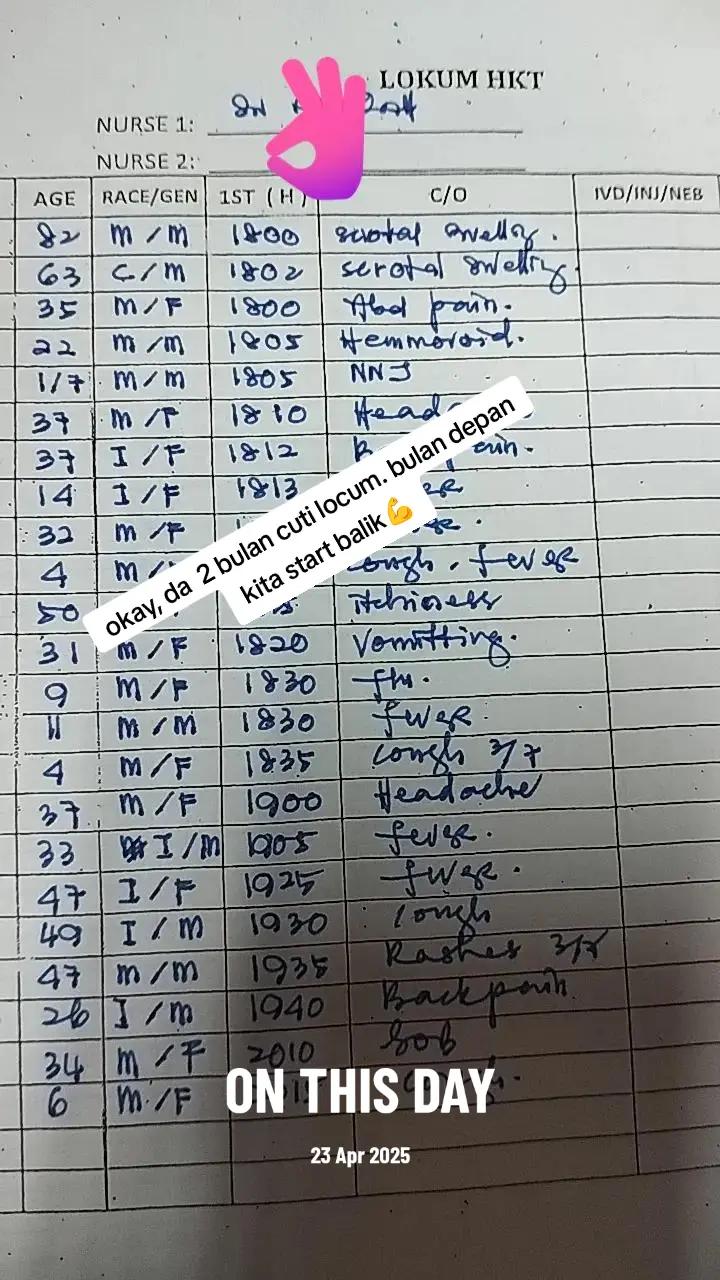 LOKUM HKT
NURSE 1: SN
NURSE 2:
AGE RACE/GEN 1ST ( H ) C/O IVD/INJ/NEB
82 M/M 1800 scrotal swelling.
63 C/M 1802 scrotal swelling.
35 M/F 1800 Abd pain.
22 M/M 1805 Hemmoroid.
1/7 M/M 1805 NNJ
37 M/F 1810
37 I/F 1812
14 I/F 1813
32 M/F
4 cough, fever
50 itchiness
okay, da 2 bulan cuti locum. bulan depan
kita start balik💪
31 M/F 1820 Vomitting.
9 M/F 1830 flu.
11 M/M 1830 fever.
4 M/F 1835 cough 3/7
37 M/F 1900 Headache
33 I/M 1905 fever.
47 I/F 1925 fever.
49 I/M 1930 cough
47 M/M 1935 Rashes 3/7
26 I/M 1940 Backpain
34 M/F 2010 SOB
6 M/F
ON THIS DAY
23 Apr 2025